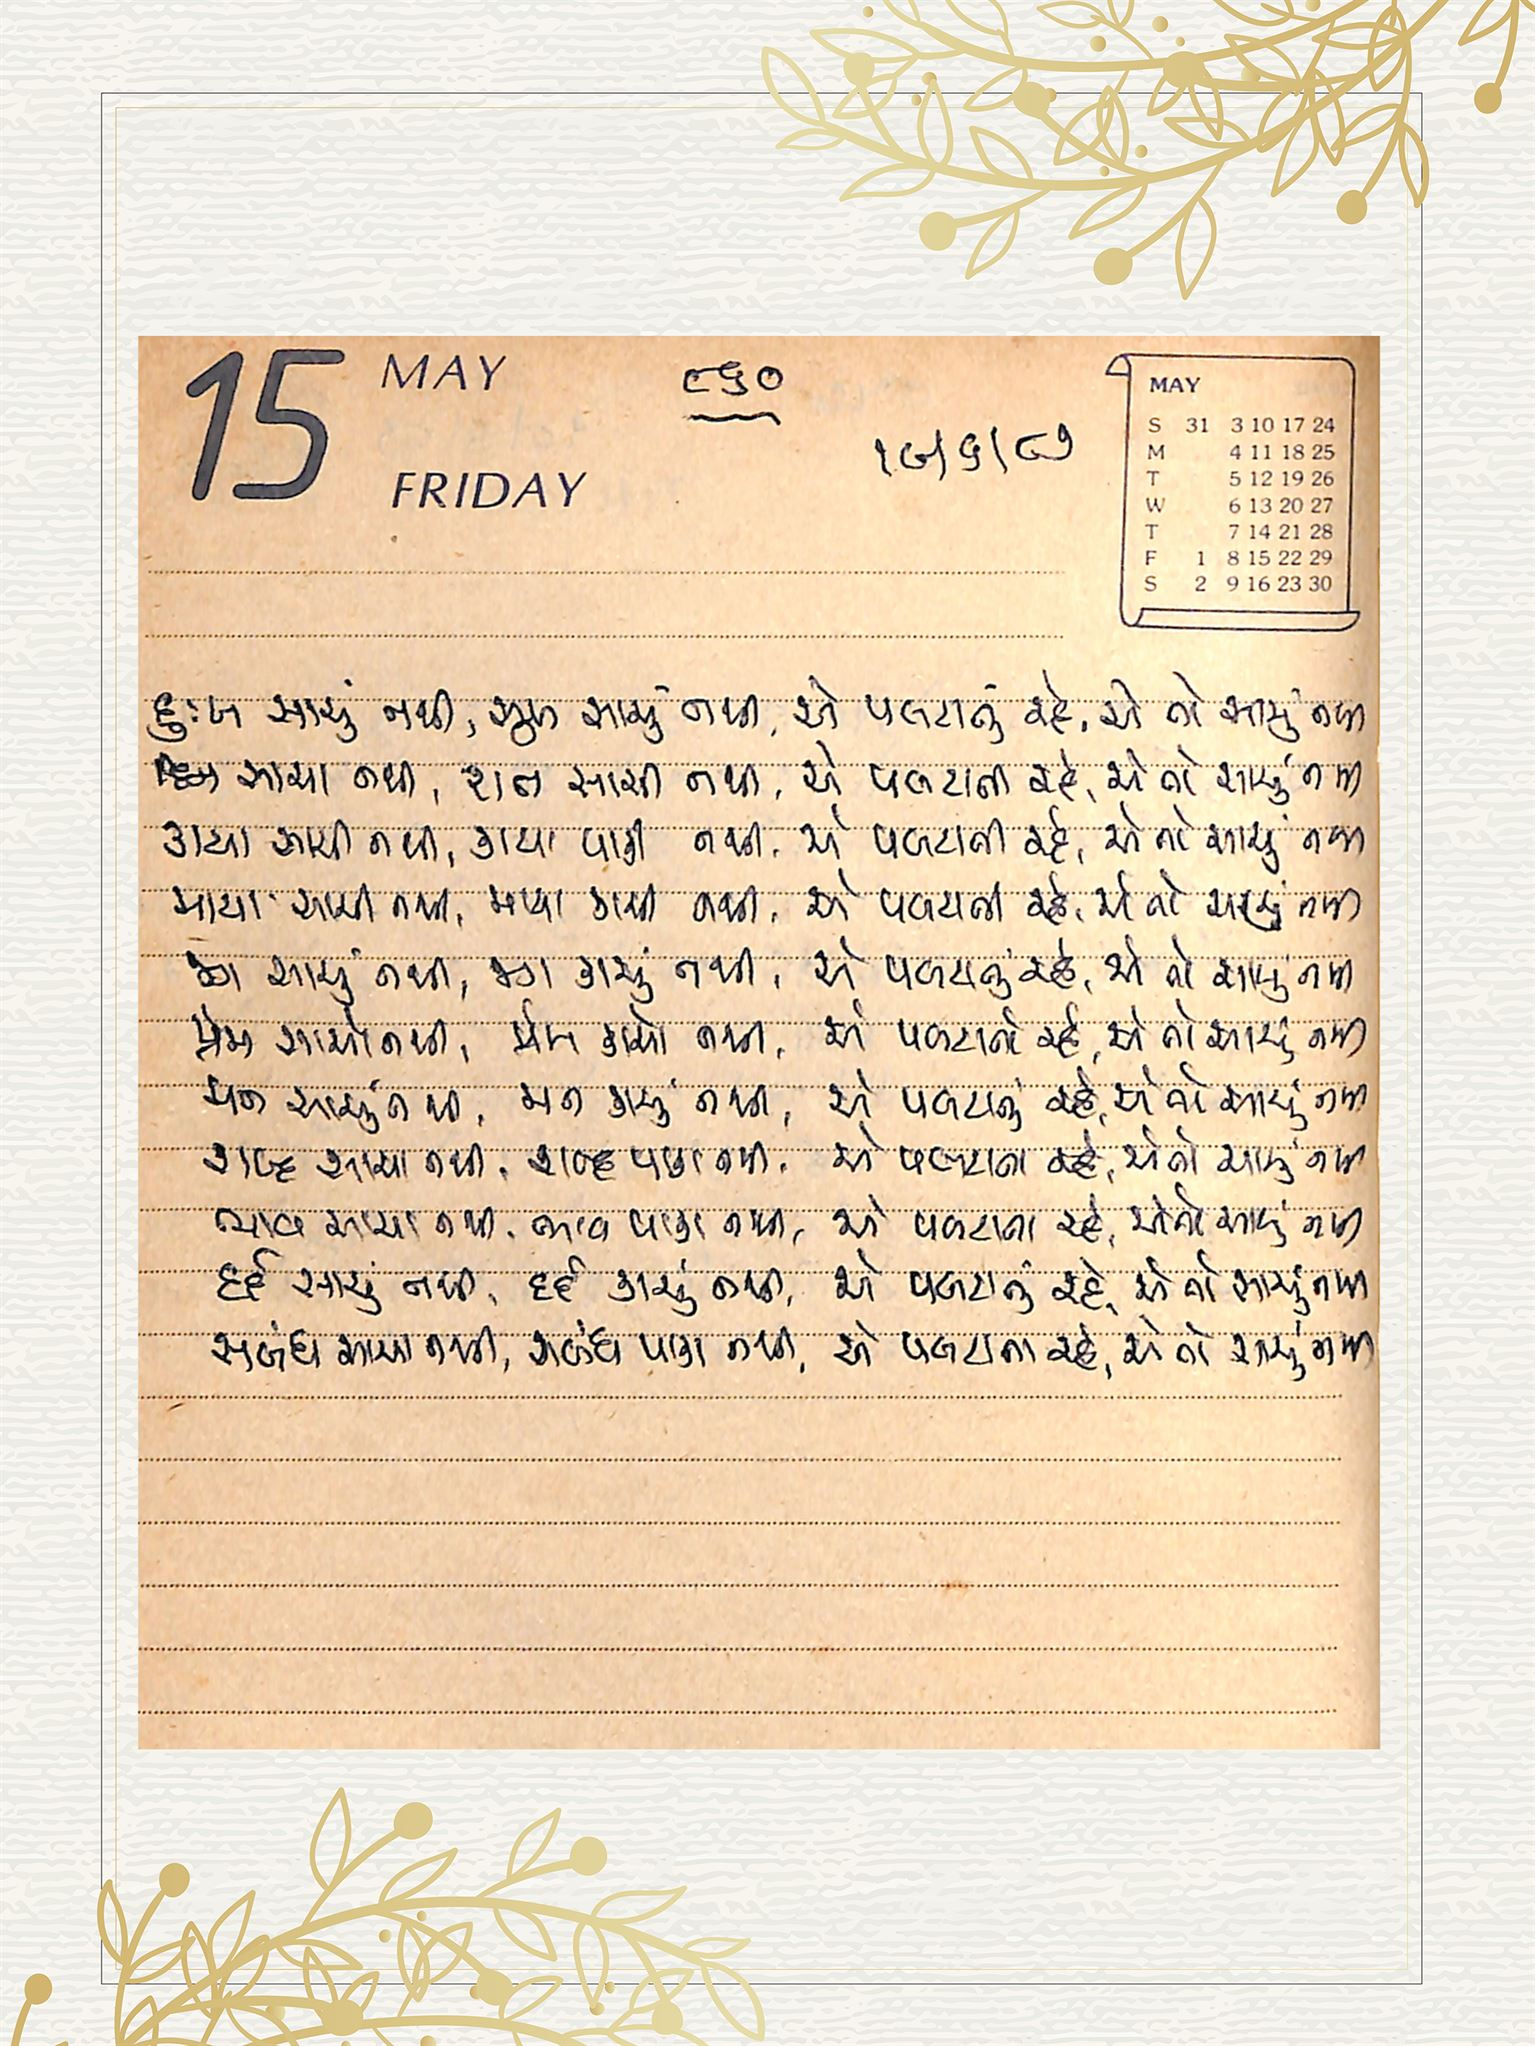 15 MAY
FRIDAY
૮૬૦
૧૭/૬/૮૭
MAY
S 31 3 10 17 24
M 4 11 18 25
T 5 12 19 26
W 6 13 20 27
T 7 14 21 28
F 1 8 15 22 29
S 2 9 16 23 30
દુઃખ સાચું નથી, સુખ સાચું નથી, એ પલટાતું રહે, એ તો સાચું નથી
સાચા નથી, રાત સાચી નથી, એ પલટાતી રહે, એ તો સાચું નથી
કાયા સાચી નથી, કાયા પાકી નથી, એ પલટાતી રહે, એ તો સાચું નથી
માયા સાચી નથી, માયા કાચી નથી, એ પલટાતી રહે, એ તો સાચું નથી
સાચું નથી, કાચું નથી, એ પલટાતું રહે, એ તો સાચું નથી
પ્રેમ સાચો નથી, પ્રેમ કાચો નથી, એ પલટાતો રહે, એ તો સાચું નથી
મન સાચું નથી, મન કાચું નથી, એ પલટાતું રહે, એ તો સાચું નથી
શબ્દ સાચા નથી, શબ્દ પાકા નથી, એ પલટાતા રહે, એ તો સાચું નથી
ભાવ સાચા નથી, ભાવ પાકા નથી, એ પલટાતા રહે, એ તો સાચું નથી
દર્દ સાચું નથી, દર્દ કાચું નથી, એ પલટાતું રહે, એ તો સાચું નથી
સબંધ સાચા નથી, સબંધ પાકા નથી, એ પલટાતા રહે, એ તો સાચું નથી